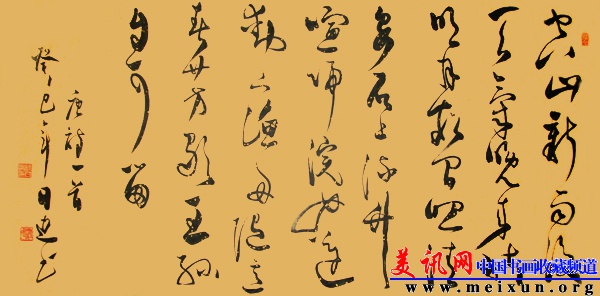 空山新雨後
天氣晚来秋
明月松間照清
泉石上流竹
喧歸浣女蓮
動下漁舟隨意
春芳歇王孫
自可留
唐詩一首
癸巳年日书
美讯网 中国书画收藏频道
www.meixun.org